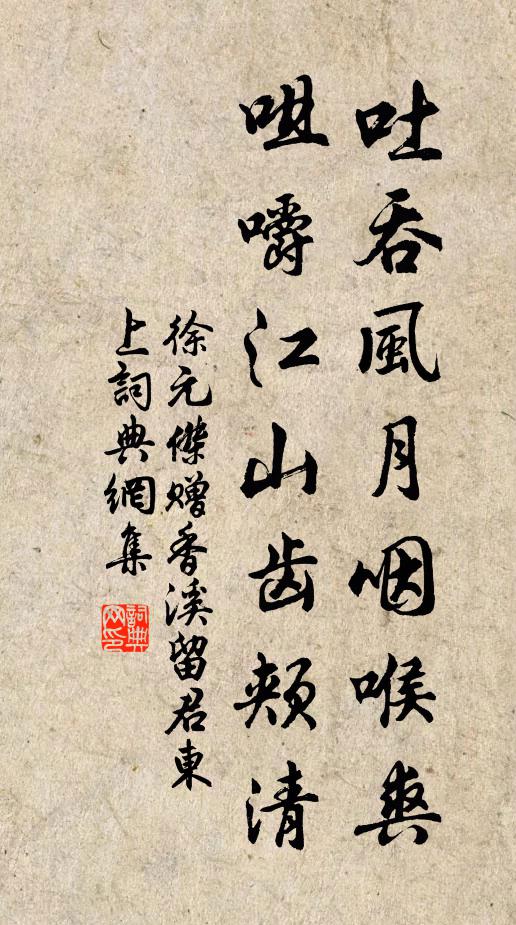 吐吞風月咽喉爽
咀嚼江山齿頰清
徐元傑赠香溪留君東
上詞典網集
詞典网印